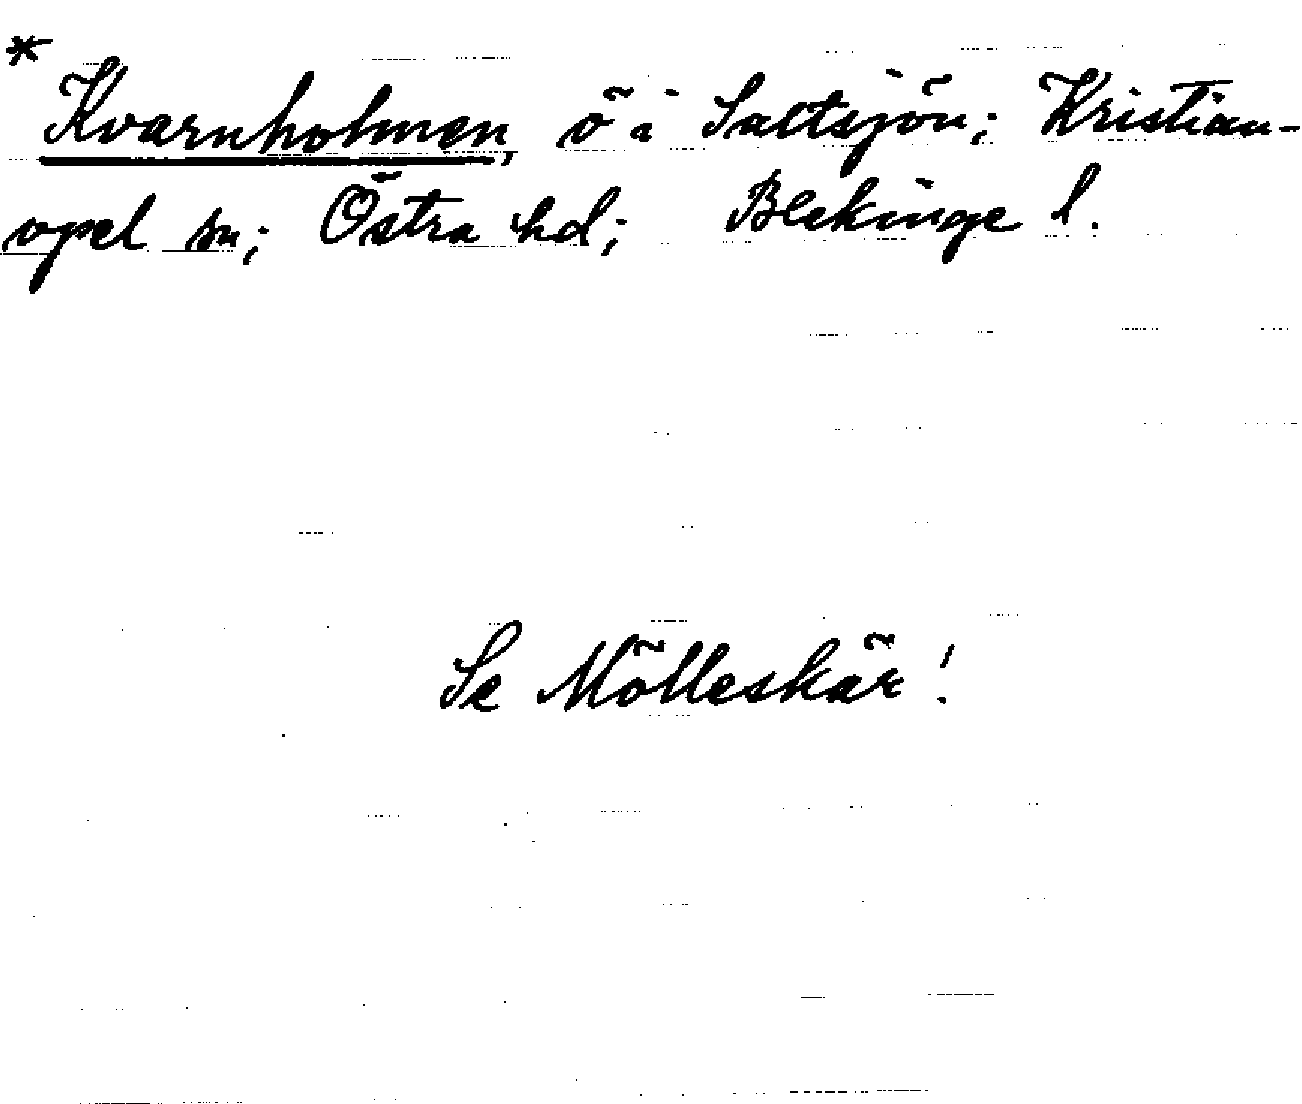 * Kvarnholmen, ö i Saltsjön; Kristian-
opel sn; Östra hd; Blekinge l.
Se Mölleskär!